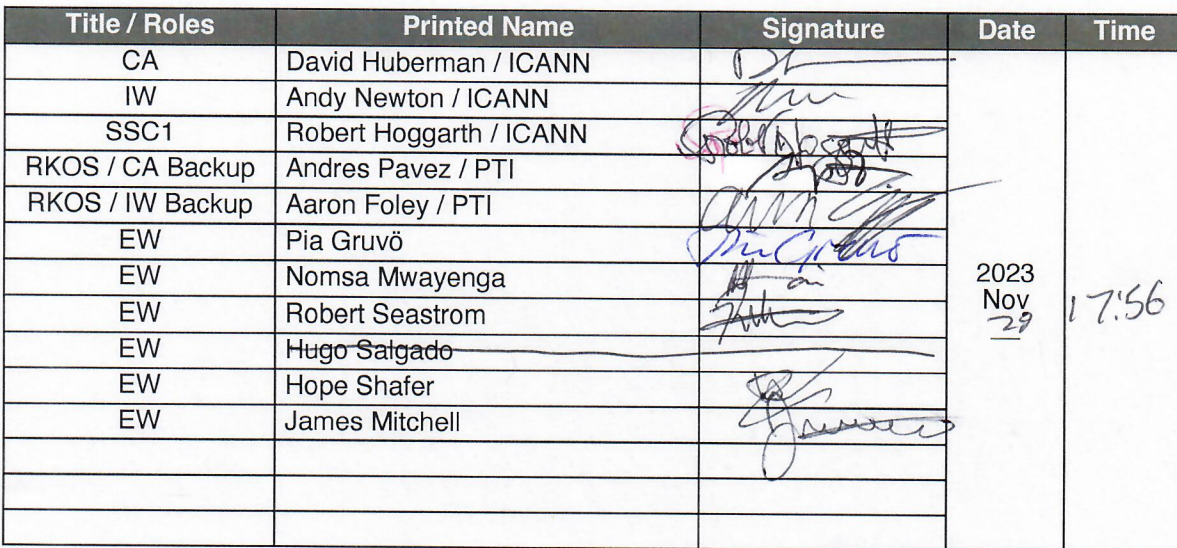 Title / Roles Printed Name Signature Date Time
CA David Huberman / ICANN
IW Andy Newton / ICANN
SSC1 Robert Hoggarth / ICANN
RKOS / CA Backup Andres Pavez / PTI
RKOS / IW Backup Aaron Foley / PTI
EW Pia Gruvö Pia Gruvö
EW Nomsa Mwayenga
EW Robert Seastrom
EW Hugo Salgado
EW Hope Shafer
EW James Mitchell
2023
Nov
17:56